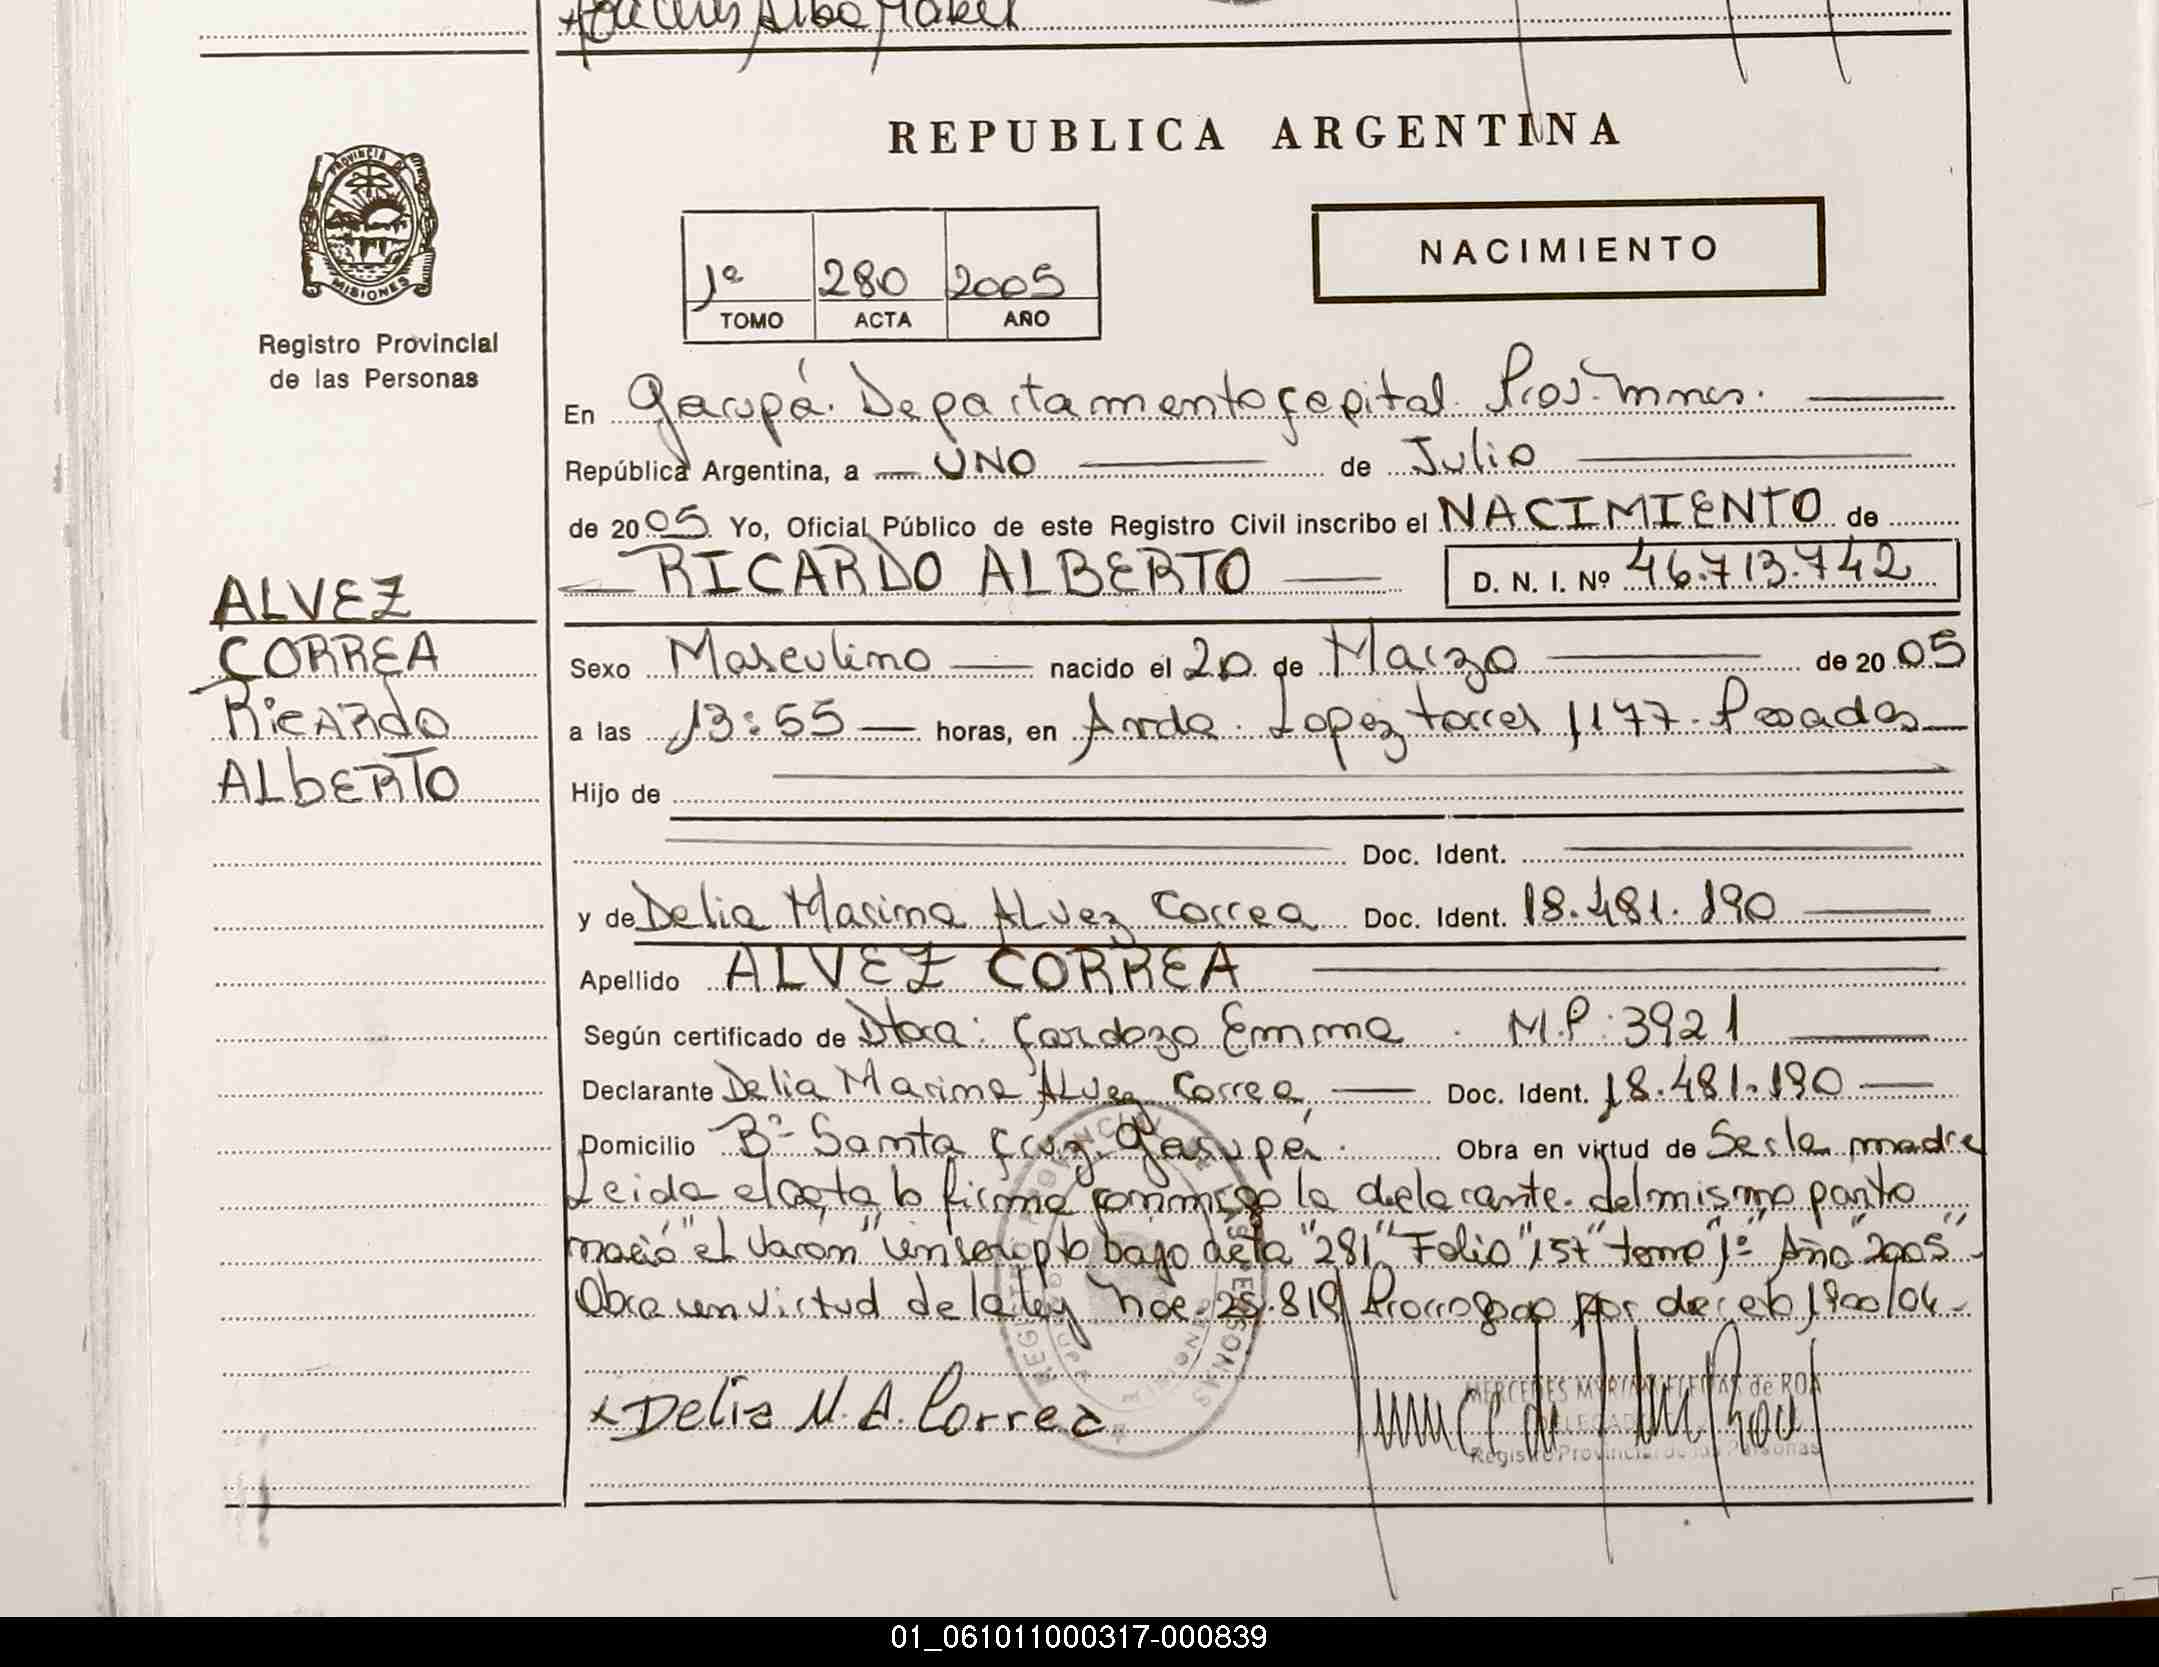 Alba Mabel
REPUBLICA ARGENTINA
PROVINCIA DE MISIONES
NACIMIENTO
1º 280 2005
TOMO ACTA AÑO
Registro Provincial
de las Personas
En Garupá. Departamento Capital. Prov. Mnes.
República Argentina, a UNO de Julio
de 2005 Yo, Oficial Público de este Registro Civil inscribo el NACIMIENTO de
RICARDO ALBERTO D. N. I. Nº 46.713.742
ALVEZ
CORREA
Ricardo
ALbERTO
Sexo Masculino nacido el 20 de Marzo de 2005
a las 13:55 horas, en Avda. Lopez torres 1177. Posadas
Hijo de
Doc. Ident.
y de Delia Marina Alvez Correa Doc. Ident. 18.481.190
Apellido ALVEZ CORREA
Según certificado de Dtora: Cardozo Emma. M.P: 3921
Declarante Delia Marina Alvez Correa, Doc. Ident. 18.481.190
Domicilio Bº Santa Cruz. Garupá. Obra en virtud de Ser la madre
Leida el acta la firma conmigo la declarante. del mismo parto
nació "el varón" inscripto bajo acta "281" Folio "157" tomo "1º" Año "2005"
Obra en virtud de la ley Nro. 25.819 Prorrogado por decreto 1900/04
x Delia M. A. Correa
MERCEDES MYRIAM FLEITAS de ROA
DELEGADA
Registro Provincial de las Personas
01_061011000317-000839